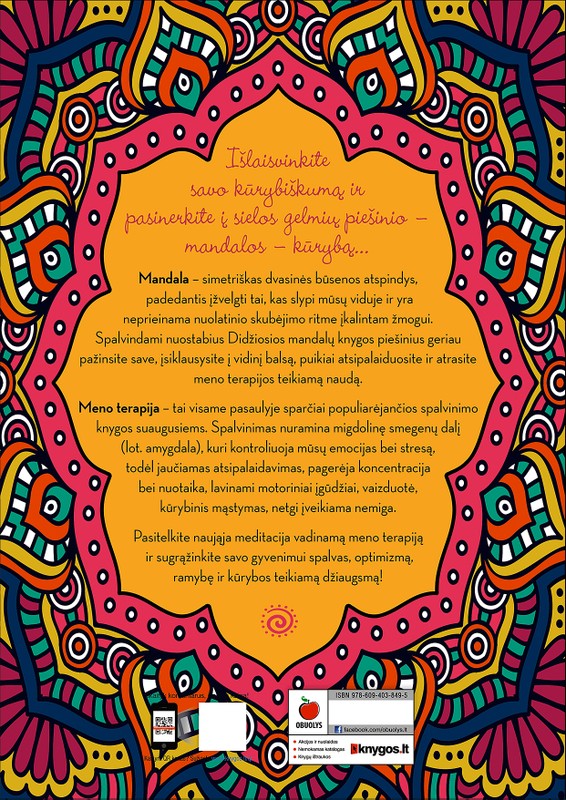 Išlaisvinkite
savo kūrybiškumą ir
pasinerkite į sielos gelmių piešinio –
mandalos – kūrybą...
Mandala – simetriškas dvasinės būsenos atspindys,
padedantis įžvelgti tai, kas slypi mūsų viduje ir yra
neprieinama nuolatinio skubėjimo ritme įkalintam žmogui.
Spalvindami nuostabius Didžiosios mandalų knygos piešinius geriau
pažinsite save, įsiklausysite į vidinį balsą, puikiai atsipalaiduosite ir atrasite
meno terapijos teikiamą naudą.
Meno terapija – tai visame pasaulyje sparčiai populiarėjančios spalvinimo
knygos suaugusiems. Spalvinimas nuramina migdolinę smegenų dalį
(lot. amygdala), kuri kontroliuoja mūsų emocijas bei stresą,
todėl jaučiamas atsipalaidavimas, pagerėja koncentracija
bei nuotaika, lavinami motoriniai įgūdžiai, vaizduotė,
kūrybinis mąstymas, netgi įveikiama nemiga.
Pasitelkite naująja meditacija vadinamą meno terapiją
ir sugrąžinkite savo gyvenimui spalvas, optimizmą,
ramybę ir kūrybos teikiamą džiaugsmą!
OBUOLYS
ISBN 978-609-403-849-5
facebook.com/obuolys.lt
Akcijos ir nuolaidos
Nemokamas katalogas
Knygų ištraukos
knygos.lt